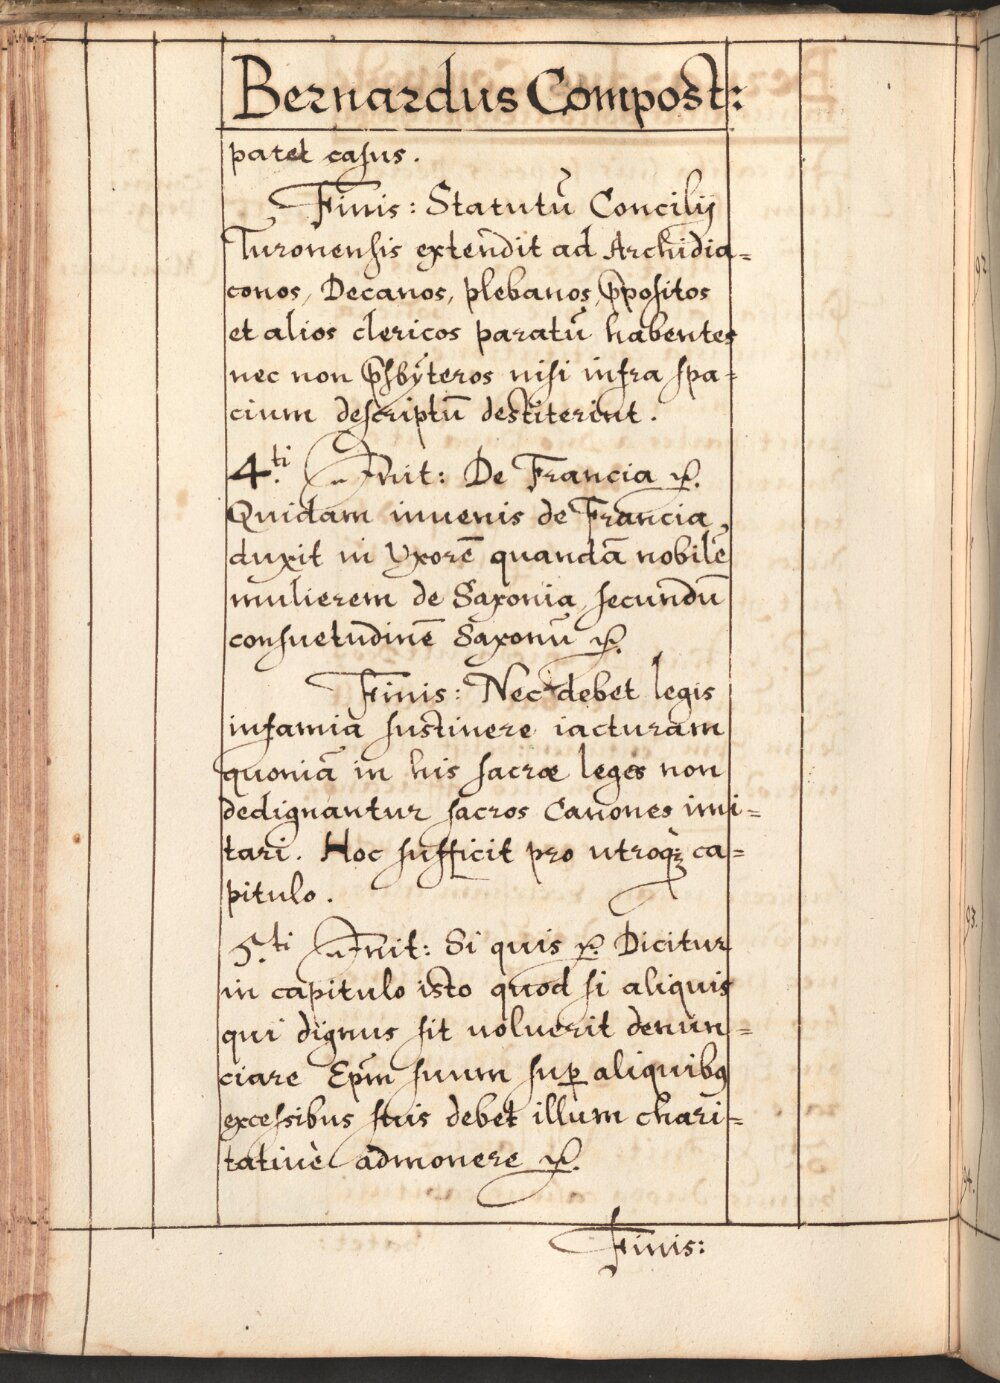 Bernardus Compost:
patet casus.
Finis: Statutū Concilij
Turonensis extendit ad Archidia=
conos, Decanos, plebanos, p̄positos
et alios clericos paratū habentes
nec non p̄sbÿteros nisi infra spa=
cium descriptū destiterint.
4.ti Init: De Francia &.
Quidam iuuenis de Francia
duxit in Vxorē quandā nobilē
mulierem de Saxonia secundū
consuetudinē Saxonū &.
Finis: Nec debet legis
infamia sustinere iacturam
quoniā in his sacræ leges non
dedignantur sacros Canones imi=
tari. Hoc sufficit pro utroq; ca=
pitulo.
5.ti Init: Si quis &. Dicitur
in capitulo isto quod si aliquis
qui dignus sit uoluerit denun=
ciare Ep̄m suum sup̱ aliquibꝰ
excessibus suis debet illum chari=
tatiuè admonere &.
Finis:
92.
93.
94.